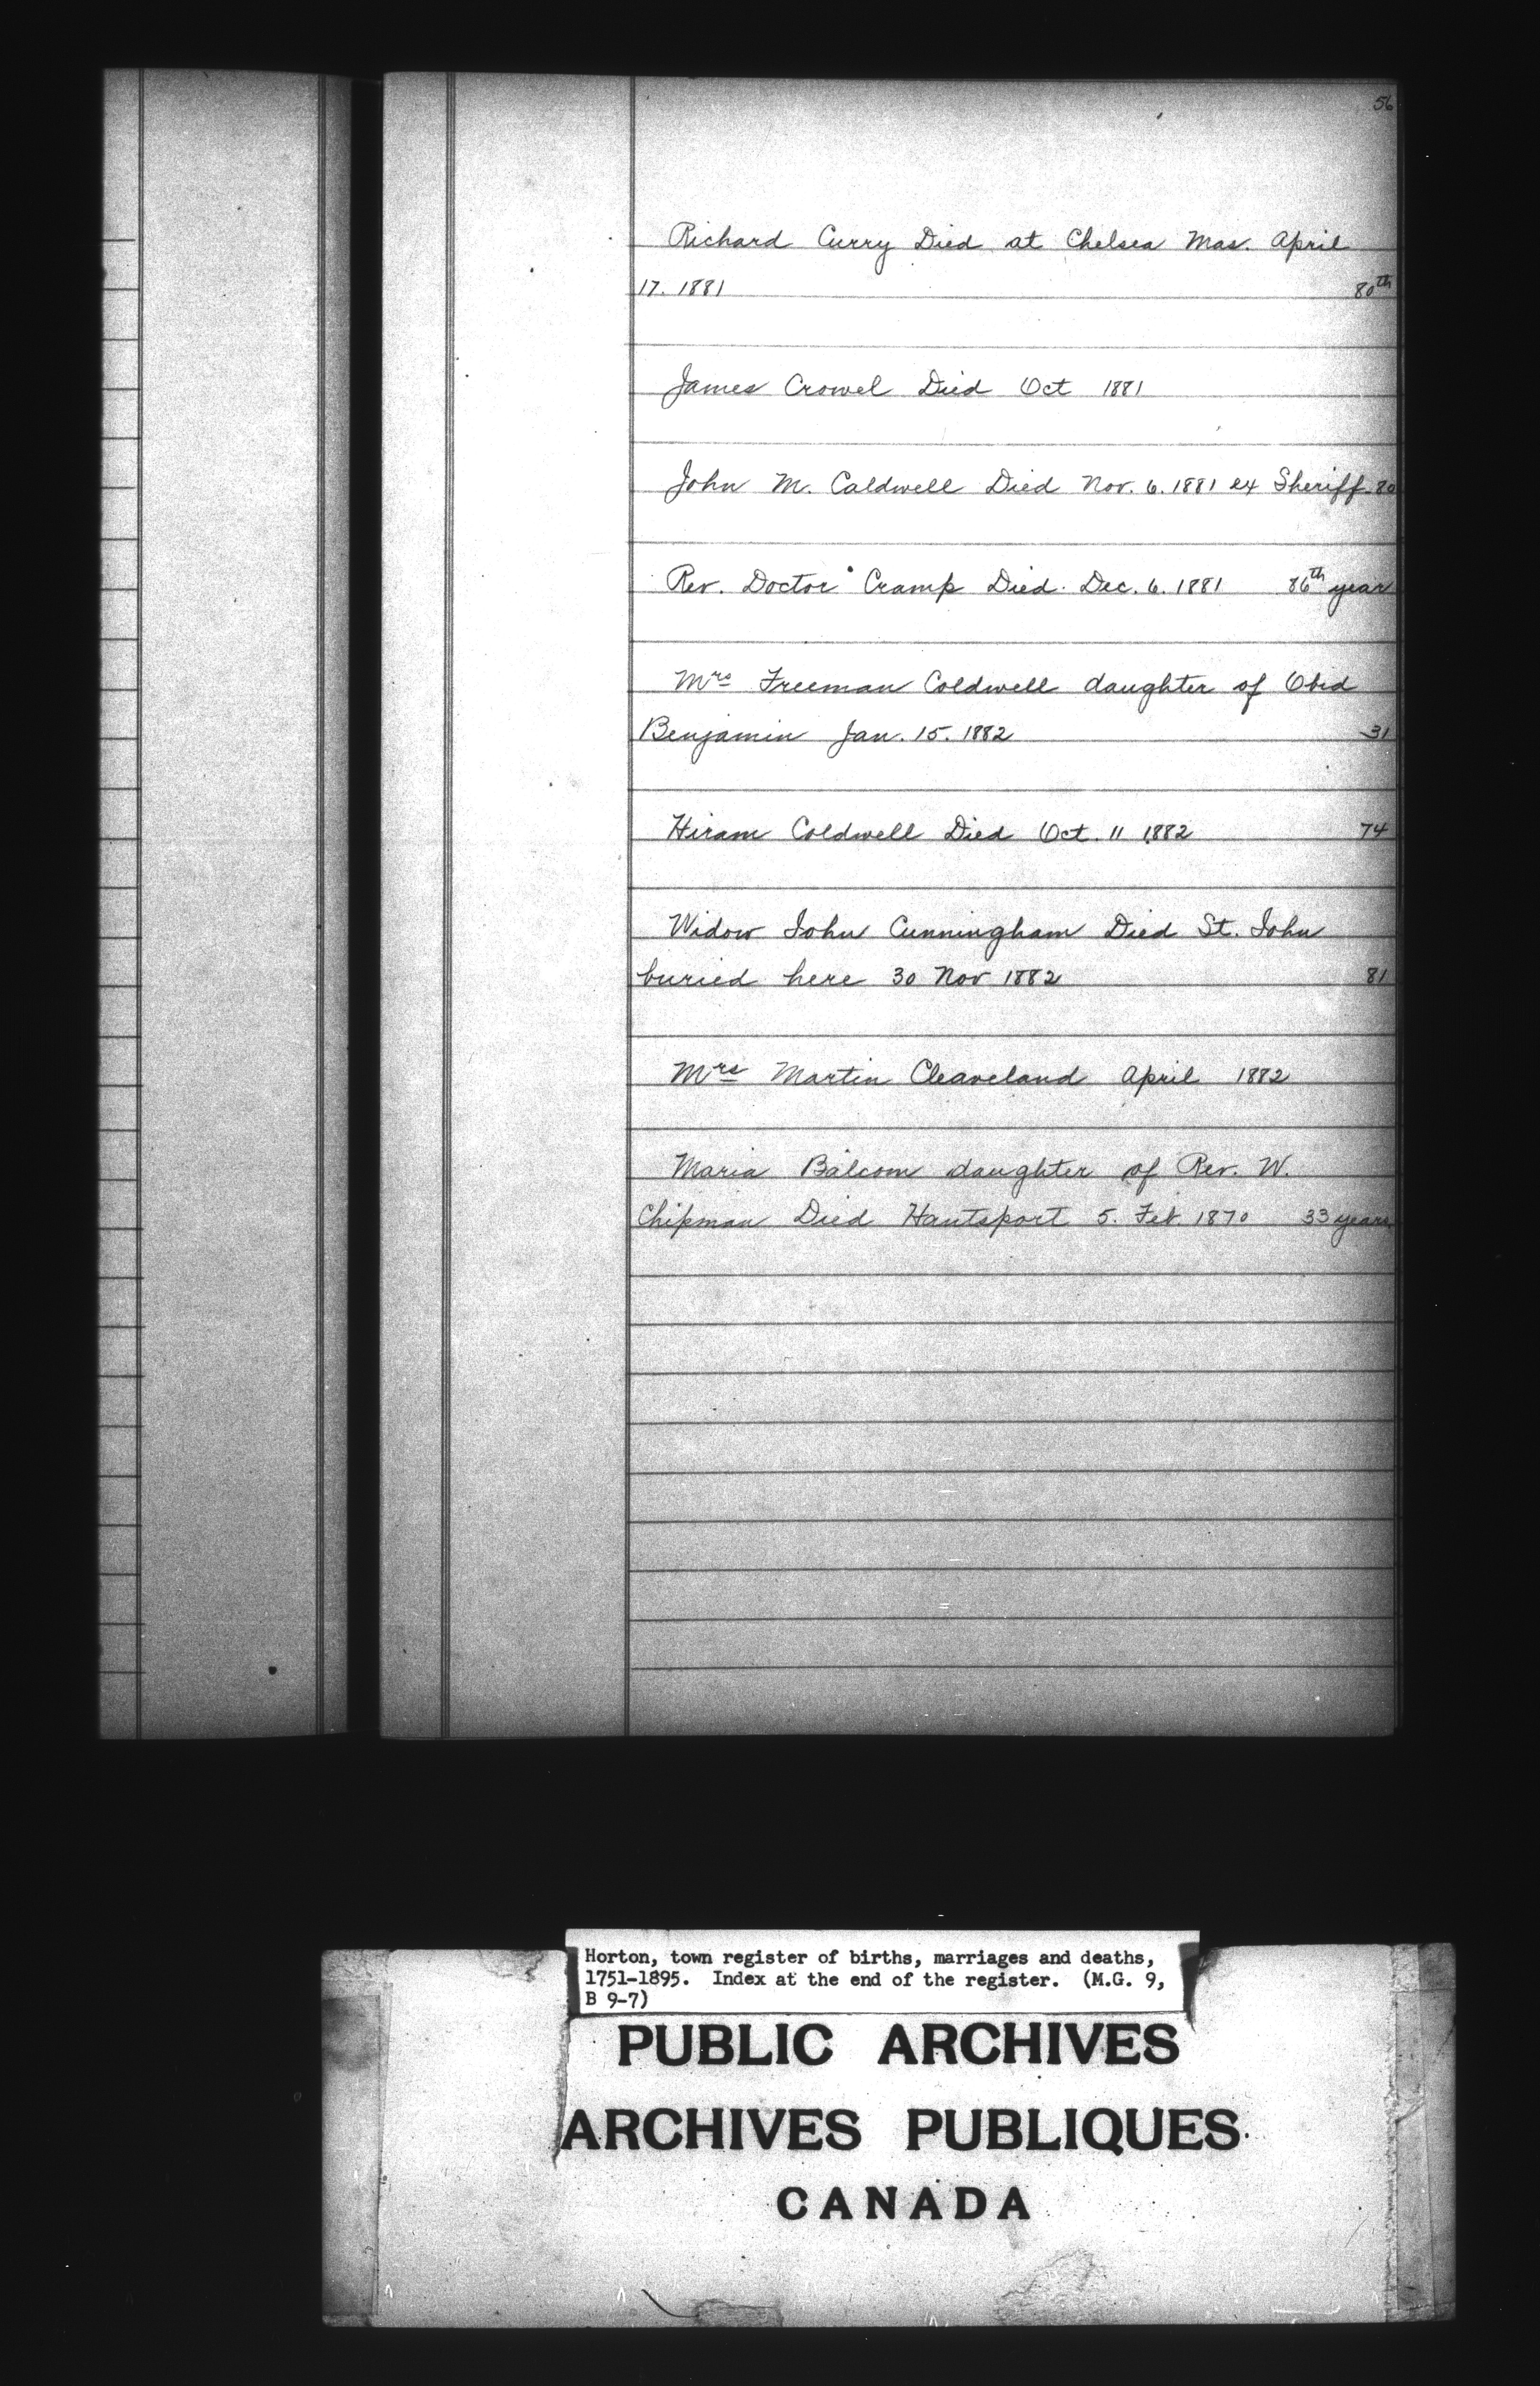 56
Richard Curry Died at Chelsea Mas. April
17. 1881 80th
James Crowel Died Oct 1881
John M. Caldwell Died Nov. 6. 1881 ex Sheriff. 80
Rev. Doctor Cramp Died. Dec. 6. 1881 86th year
Mrs Freeman Coldwell daughter of Obed
Benjamin Jan. 15. 1882 31
Hiram Coldwell Died Oct. 11 1882 74
Widow John Cunningham Died St. John
buried here 30 Nov 1882 81
Mrs Martin Cleaveland April 1882
Maria Balcom daughter of Rev. W.
Chipman Died Hantsport 5. Feb. 1870 33 years
Horton, town register of births, marriages and deaths,
1751-1895. Index at the end of the register. (M.G. 9,
B 9-7)
PUBLIC ARCHIVES
ARCHIVES PUBLIQUES
CANADA